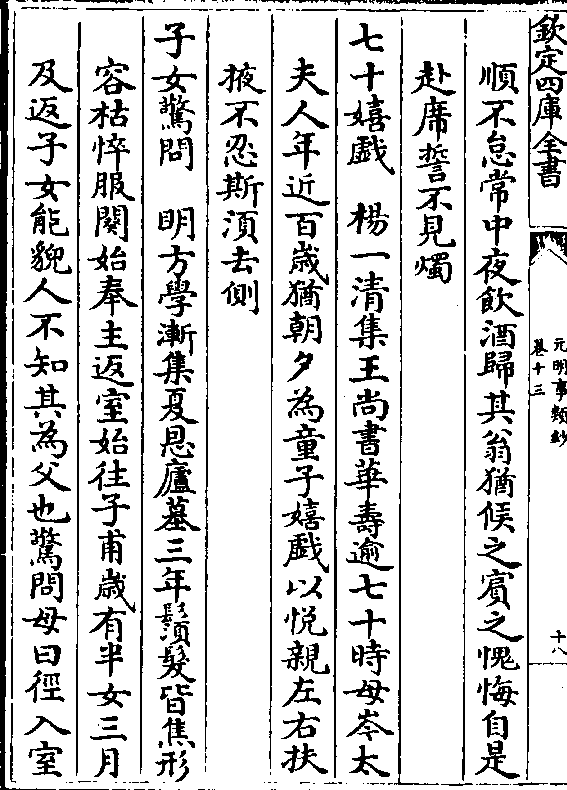 欽定四庫全書
元明事類鈔
卷十三
十八
順不怠常中夜飲酒歸其翁猶候之賓之愧悔自是
赴席誓不見燭
七十嬉戲　楊一清集王尚書華壽逾七十時母岑太
夫人年近百歲猶朝夕為童子嬉戲以悅親左右扶
掖不忍斯須去側
子女驚問　明方學漸集夏恩廬墓三年鬚髮皆焦形
容枯悴服闋始奉主返室始往子甫歲有半女三月
及返子女能貌人不知其為父也驚問母曰徑入室